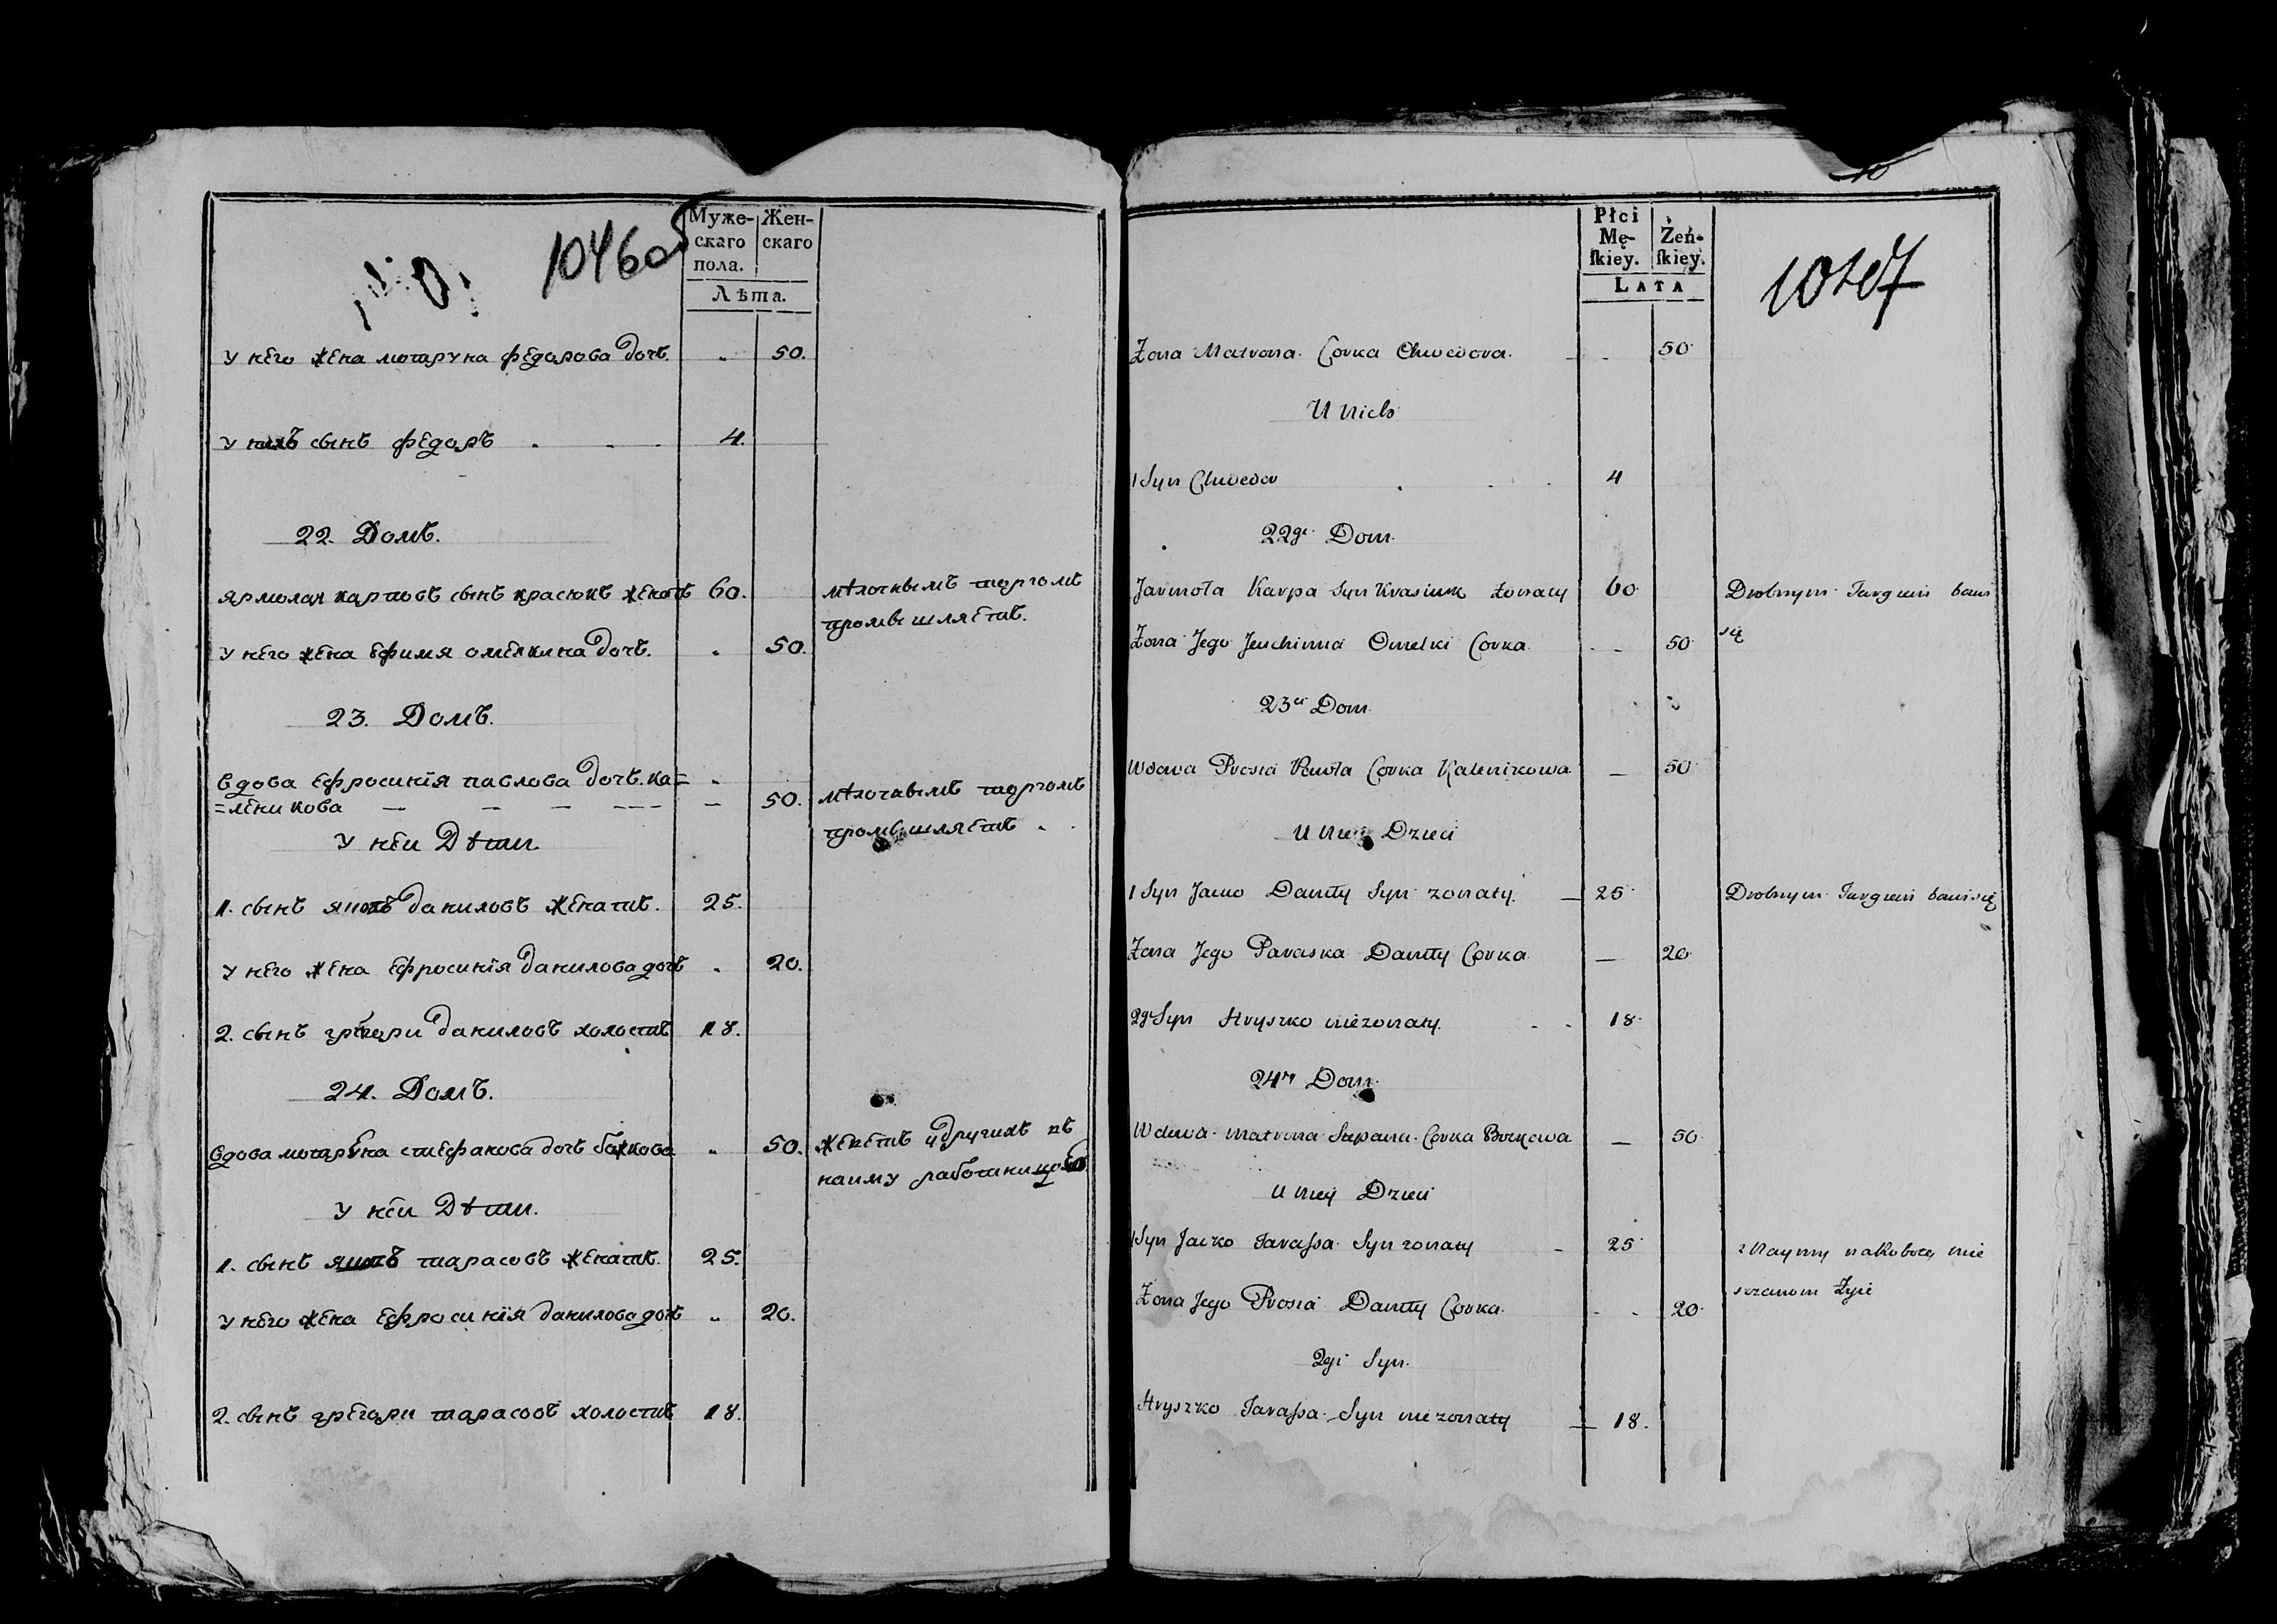 1046об
Муже-
скаго
пола.
Жен-
скаго
Лѣта.
у него жена мотруна федорова дочь. 50.
у нихъ сынъ федоръ 4.
22. Домъ.
ярмолай карповъ сынъ красюкъ женатъ 60. мѣлочнымъ торгомъ
промышляетъ.
у него жена ефимя омелкина дочь. 50.
23. Домъ.
вдова ефросинія павлова дочь. ка=
=леникова 50. мѣлочнымъ торгомъ
промышляетъ.
у неи Дѣти.
1. сынъ яцко даниловъ женатъ. 25.
у него жена ефросинія данилова дочь 20.
2. сынъ грегори даниловъ холостъ 18.
24. Домъ.
вдова мотруна стефанова дочь божкова 50. живетъ у другихъ въ
наиму работницою
у неи Дѣти.
1. сынъ тарасовъ женатъ. 25.
у него жена ефросинія данилова дочь 20.
2. сынъ грегори тарасовъ холостъ 18.
Płci
Mę-
ſkiey.
Żeń-
ſkiey.
LATA
1047
Żona Matrona Corka Chwedora. 50
U Nich
1 Syn Chwedor 4
22gi Dom.
Jarmoła Karpa Syn Krasiuk żonaty 60 Drobnym Targiem bawi
się
Żona Jego Jeuchimia Omelki Corka 50
23ci Dom
Wdowa Prosia Pawła Corka Kalenikowa 50
U Niey Dzieci
1 Syn Jacko Daniły Syn zonaty. 25 Drobnym Targiem bawi się
Żona Jego Paraska Daniły Corka 20
2gi Syn Hryszko niezonaty. 18
24ty Dom.
Wdowa Matrona Stepana Corka Bozkowa 50
U Niey Dzieci
1 Syn Jacko Tarassa Syn zonaty 25 z Naymy na Robotę
Żyie
Żona Jego Prosia Daniły Corka. 20
2gi Syn.
Hryszko Tarassa Syn niezonaty 18.